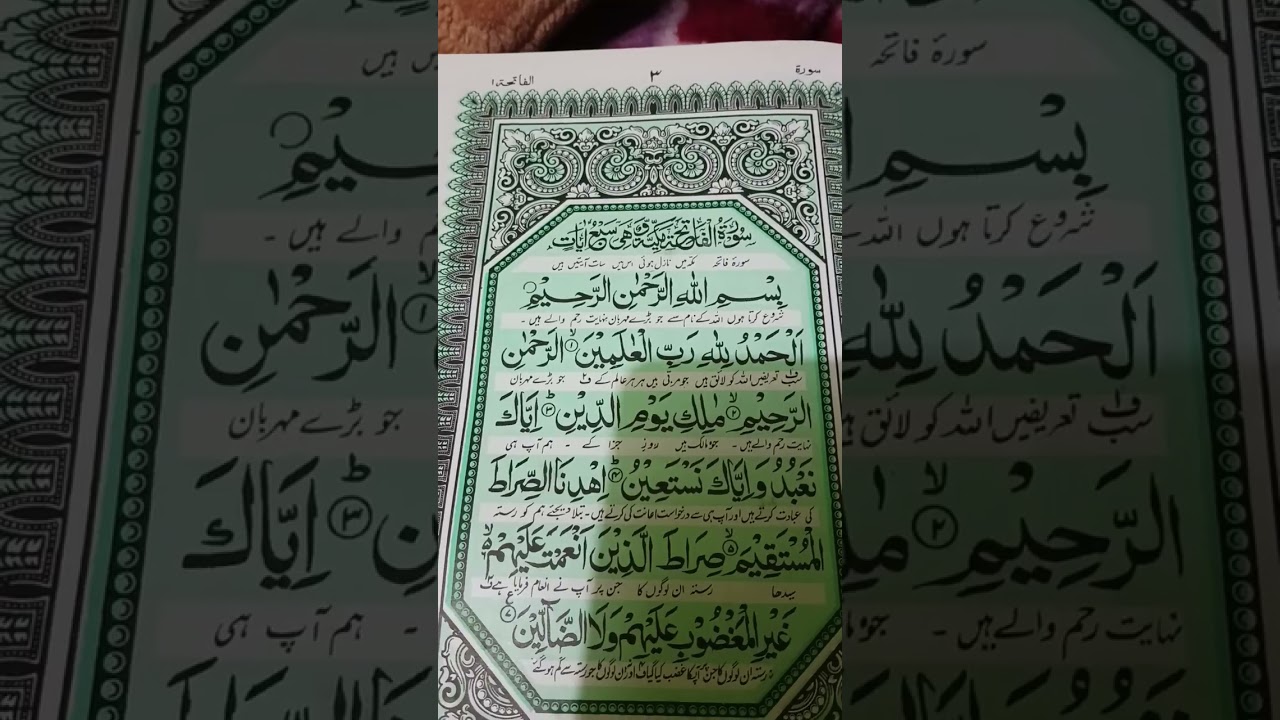 سورة ٣ الفاتحة ١
سُوْرَةُ الْفَاتِحَةِ مَكِّيَّةٌ وَّهِیَ سَبْعُ اٰیَاتٍ
سورۂ فاتحہ مکہ میں نازل ہوئی اس میں سات آیتیں ہیں
بِسْمِ اللّٰهِ الرَّحْمٰنِ الرَّحِیْمِ
شروع کرتا ہوں اللہ کے نام سے جو بڑے مہربان نہایت رحم والے ہیں ۔
اَلْحَمْدُ لِلّٰهِ رَبِّ الْعٰلَمِیْنَ ۙ۱ الرَّحْمٰنِ
سب تعریفیں اللہ کو لائق ہیں جو مربی ہیں ہر ہر عالم کے ف جو بڑے مہربان
الرَّحِیْمِ ۙ۲ مٰلِكِ یَوْمِ الدِّیْنِ ؕ۳ اِیَّاكَ
نہایت رحم والے ہیں ۔ جو مالک ہیں روز جزا کے ۔ ہم آپ ہی
نَعْبُدُ وَ اِیَّاكَ نَسْتَعِیْنُ ؕ۴ اِهْدِنَا الصِّرَاطَ
کی عبادت کرتے ہیں اور آپ ہی سے درخواست اعانت کی کرتے ہیں ۔ بتلا دیجئے ہم کو رستہ
الْمُسْتَقِیْمَ ۙ۵ صِرَاطَ الَّذِیْنَ اَنْعَمْتَ عَلَیْهِمْ ۙ۬
سیدھا رستہ ان لوگوں کا جن پر آپ نے انعام فرمایا ہے ف
غَیْرِ الْمَغْضُوْبِ عَلَیْهِمْ وَلَا الضَّآلِّیْنَ ۷
نہ رستہ ان لوگوں کا جن پر آپ کا غضب کیا گیا اور نہ ان لوگوں کا جو رستہ سے گم ہو گئے